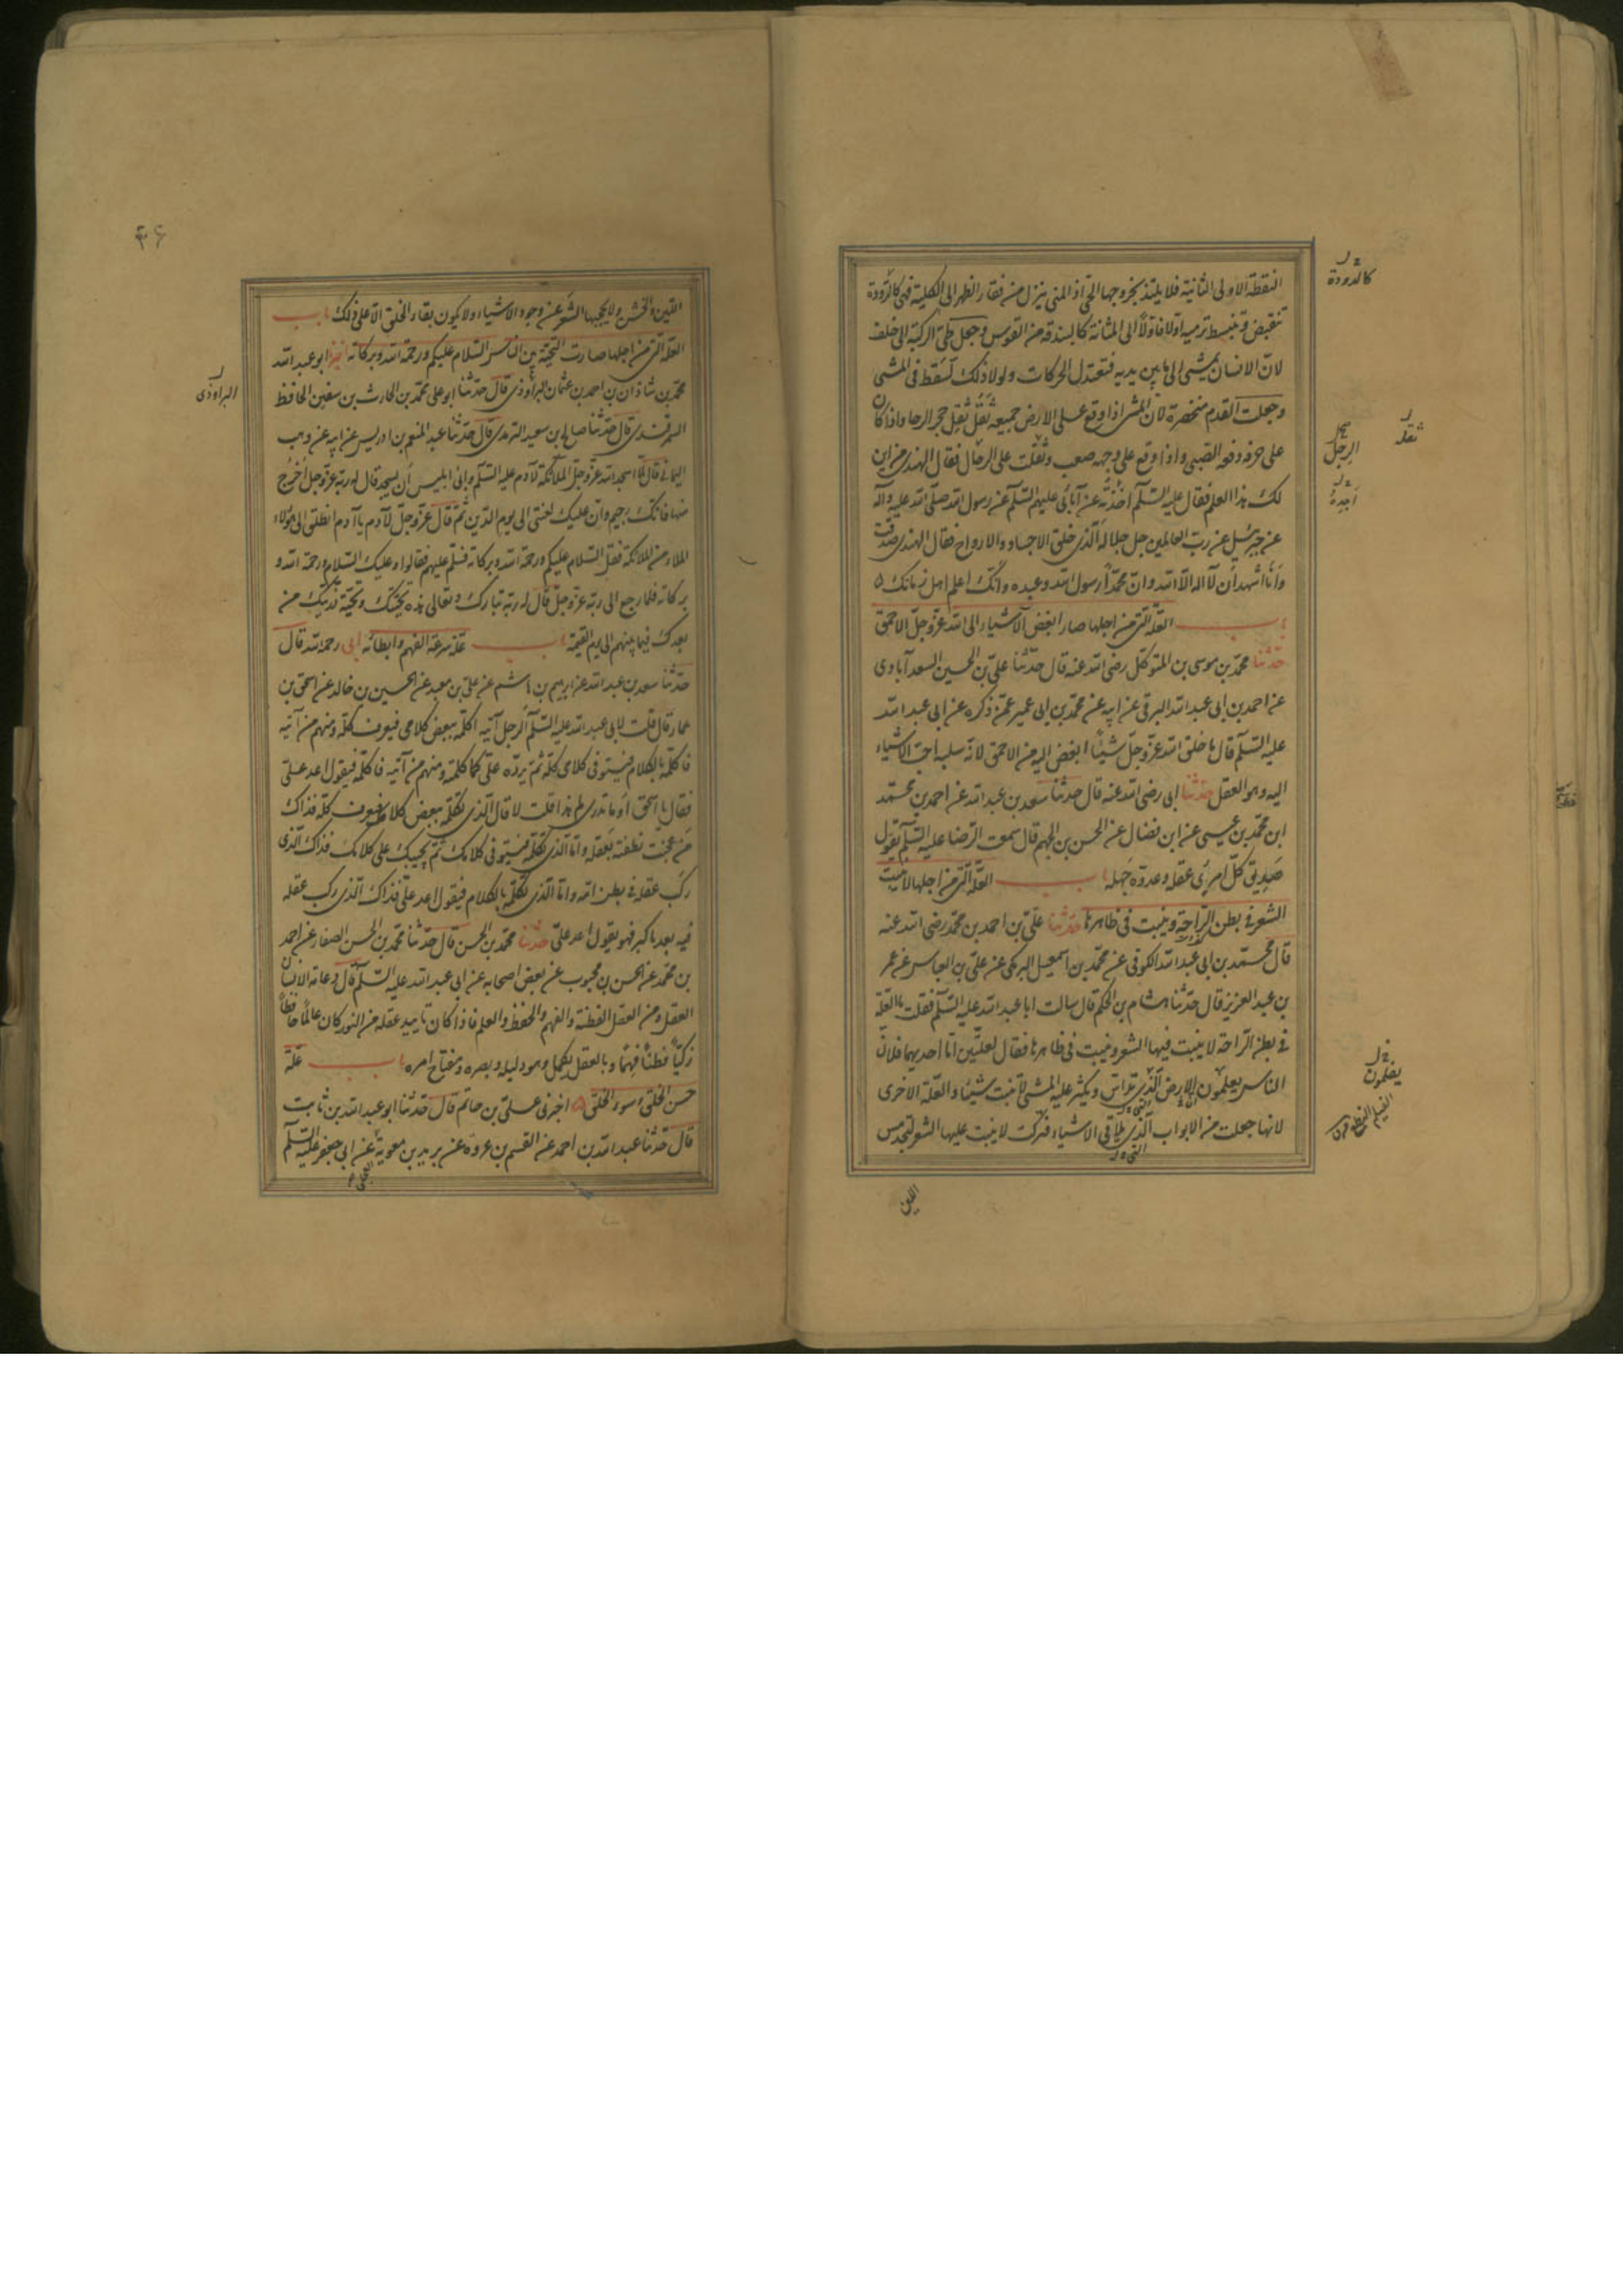 النقطة الاولى الى الثانية فلا يلتذ بخروجها الحى اذ المنى ينزل من فقار الظهر الى الكلية فهى كالدودة
تنقبض و تنبسط ترميه اولا فاولا الى المثانة كالبندقة من القوس وجعل طى الركبة الى خلف
لان الانسان يمشى الى ما بين يديه فتعتدل الحركات ولولا ذلك لسقط فى المشى
وجعلت القدم متخصرة لان المشى اذا وقع على الارض جميعه ثقل ثقل حجر الرحا واذا كان
على حرفه دفعه الصبى واذا وقع على وجهه صعب وثقلت على الرحال فقال الهندى من اين
لك هذا العلم فقال عليه السلم اخذته عن آبائى عليهم السلم عن رسول الله صلى الله عليه وآله
عن جبرئيل عن رب العالمين جل جلاله الذى خلق الاجساد والارواح فقال الهندى صدقت
وانا اشهد ان لا اله الا الله وان محمدا رسول الله وعبده وانك اعلم اهل زمانك
باب العلة التى من اجلها صار ابغض الاشياء الى الله عز وجل الاحمق
حدثنا محمد بن موسى بن المتوكل رضى الله عنه قال حدثنا على بن الحسين السعد آبادى
عن احمد بن ابى عبد الله البرقى عن ابيه عن محمد بن ابى عمير عمن ذكره عن ابى عبد الله
عليه السلم قال ما خلق الله عز وجل شيئا ابغض اليه من الاحمق لانه سلبه احب الاشياء
اليه وهو العقل حدثنا ابى رضى الله عنه قال حدثنا سعد بن عبد الله عن احمد بن محمد
ابن محمد بن عيسى عن ابن فضال عن الحسن بن الجهم قال سمعت الرضا عليه السلم يقول
صديق كل امرئ عقله وعدوه جهله باب العلة التى من اجلها لا ينبت
الشعر فى بطن الراحة وينبت فى ظاهرها حدثنا على بن احمد بن محمد رضى الله عنه
قال محمد بن ابى عبد الله الكوفى عن محمد بن اسمعيل البرمكى عن على بن العباس عن عمر
بن عبد العزيز قال حدثنا هشام بن الحكم قال سالت ابا عبد الله عليه السلم فقلت ما العلة
فى بطن الراحة لا ينبت فيها الشعر وينبت فى ظاهرها فقال لعلتين اما احديهما فلان
الناس يعلمون الارض الذى تداس ويكثر عليه المشى لا تنبت شيئا والعلة الاخرى
لانها جعلت من الابواب الذى يلاقى الاشياء فتركت لا ينبت عليها الشعر لتجد مس
اللين
كالدودة
ثقله
الرجل
يعلمون
اللين والخشن ولا يحجبها الشعر عن وجود الاشياء ولا يكون بقاء الخلق الا على ذلك باب
العلة التى من اجلها صارت التحية بين الناس السلام عليكم ورحمة الله وبركاته ابو عبد الله
محمد بن شاذان بن احمد بن عثمان البراوذى قال حدثنا ابو على محمد بن الحارث بن سفين الحافظ
السمرقندى قال حدثنا صالح بن سعيد الترمذى قال حدثنا عبد المنعم بن ادريس عن ابيه عن وهب
اليمانى قال لما اسجد الله عز وجل الملائكة لآدم عليه السلم وابى ابليس ان يسجد قال له ربه عز وجل اخرج
منها فانك رجيم وان عليك لعنتى الى يوم الدين ثم قال عز وجل لآدم يا آدم انطلق الى هؤلاء
الملاء من الملائكة فقل السلام عليكم ورحمة الله وبركاته فسلم عليهم فقالوا وعليك السلام ورحمة الله و
بركاته فلما رجع الى ربه عز وجل قال له ربه تبارك وتعالى هذه تحيتك وتحية ذريتك من
بعدك فيما بينهم الى يوم القيمة باب علة سرعة الفهم وابطائه ابى رحمه الله قال
حدثنا سعد بن عبد الله عن ابرهيم بن هاشم عن على بن معبد عن الحسين بن خالد عن اسحق بن
عمار قال قلت لابى عبد الله عليه السلم الرجل آتيه اكلمه ببعض كلامى فيعرف كله ومنهم من آتيه
فاكلمه بالكلام فيستوفى كلامى كله ثم يرده على كما كلمته ومنهم من آتيه فاكلمه فيقول اعد على
فقال يا اسحق او ما تدرى لم هذا قلت لا قال الذى تكلمه ببعض كلامك فيعرف كله فذاك
من عجنت نطفته بعقله واما الذى تكلمه فيستوفى كلامك ثم يجيبك على كلامك فذاك الذى
ركب عقله فى بطن امه واما الذى تكلمه بالكلام فيقول اعد على فذاك الذى ركب عقله
فيه بعد ما كبر فهو يقول اعد على حدثنا محمد بن الحسن قال حدثنا محمد بن الحسن الصفار عن احمد
بن محمد عن الحسن بن محبوب عن بعض اصحابه عن ابى عبد الله عليه السلم قال دعامة الانسان
العقل ومن العقل الفطنة والفهم والحفظ والعلم فاذا كان تاييد عقله من النور كان عالما حافظا
زكيا فطنا فهما وبالعقل يكمل وهو دليله ومبصره ومفتاح امره باب علة
حسن الخلق وسوء الخلق اخبرنى على بن حاتم قال حدثنا ابو عبد الله بن ثابت
قال حدثنا عبد الله بن احمد عن القسم بن عروة عن بريد بن معوية عن ابى جعفر عليه السلم
البراوذى